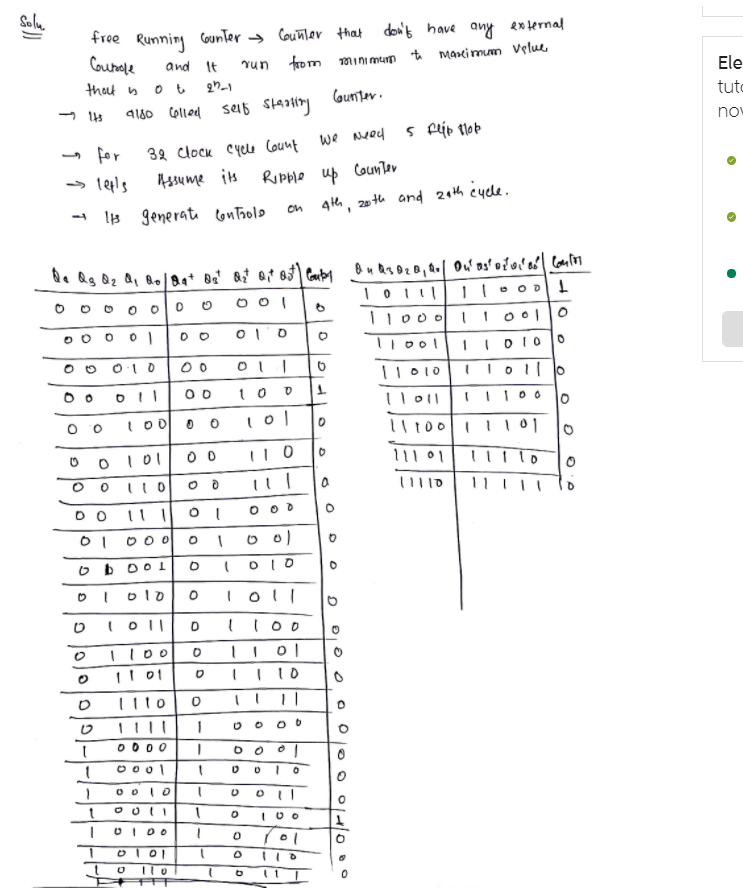 Soln.
free Running Counter → Counter that don't have any external
Controle and It run from minimum to maximum value
that is 0 to 2ⁿ-1
→ Its also Called self starting Counter.
→ for 32 Clock cycle Count we need 5 flip flop
→ let's Assume its Ripple up Counter
→ Its generate Controls on 4th, 20th and 24th cycle.
Q4 Q3 Q2 Q1 Q0 Q4+ Q3+ Q2+ Q1+ Q0+ Control
0 0 0 0 0 0 0 0 0 1 0
0 0 0 0 1 0 0 0 1 0 0
0 0 0 1 0 0 0 0 1 1 0
0 0 0 1 1 0 0 1 0 0 1
0 0 1 0 0 0 0 1 0 1 0
0 0 1 0 1 0 0 1 1 0 0
0 0 1 1 0 0 0 1 1 1 0
0 0 1 1 1 0 1 0 0 0 0
0 1 0 0 0 0 1 0 0 1 0
0 1 0 0 1 0 1 0 1 0 0
0 1 0 1 0 0 1 0 1 1 0
0 1 0 1 1 0 1 1 0 0 0
0 1 1 0 0 0 1 1 0 1 0
0 1 1 0 1 0 1 1 1 0 0
0 1 1 1 0 0 1 1 1 1 0
0 1 1 1 1 1 0 0 0 0 0
1 0 0 0 0 1 0 0 0 1 0
1 0 0 0 1 1 0 0 1 0 0
1 0 0 1 0 1 0 0 1 1 0
1 0 0 1 1 1 0 1 0 0 1
1 0 1 0 0 1 0 1 0 1 0
1 0 1 0 1 1 0 1 1 0 0
1 0 1 1 0 1 0 1 1 1 0
Q4 Q3 Q2 Q1 Q0 Q4+ Q3+ Q2+ Q1+ Q0+ Control
1 0 1 1 1 1 1 0 0 0 1
1 1 0 0 0 1 1 0 0 1 0
1 1 0 0 1 1 1 0 1 0 0
1 1 0 1 0 1 1 0 1 1 0
1 1 0 1 1 1 1 1 0 0 0
1 1 1 0 0 1 1 1 0 1 0
1 1 1 0 1 1 1 1 1 0 0
1 1 1 1 0 1 1 1 1 1 0
Ele
tuto
nov